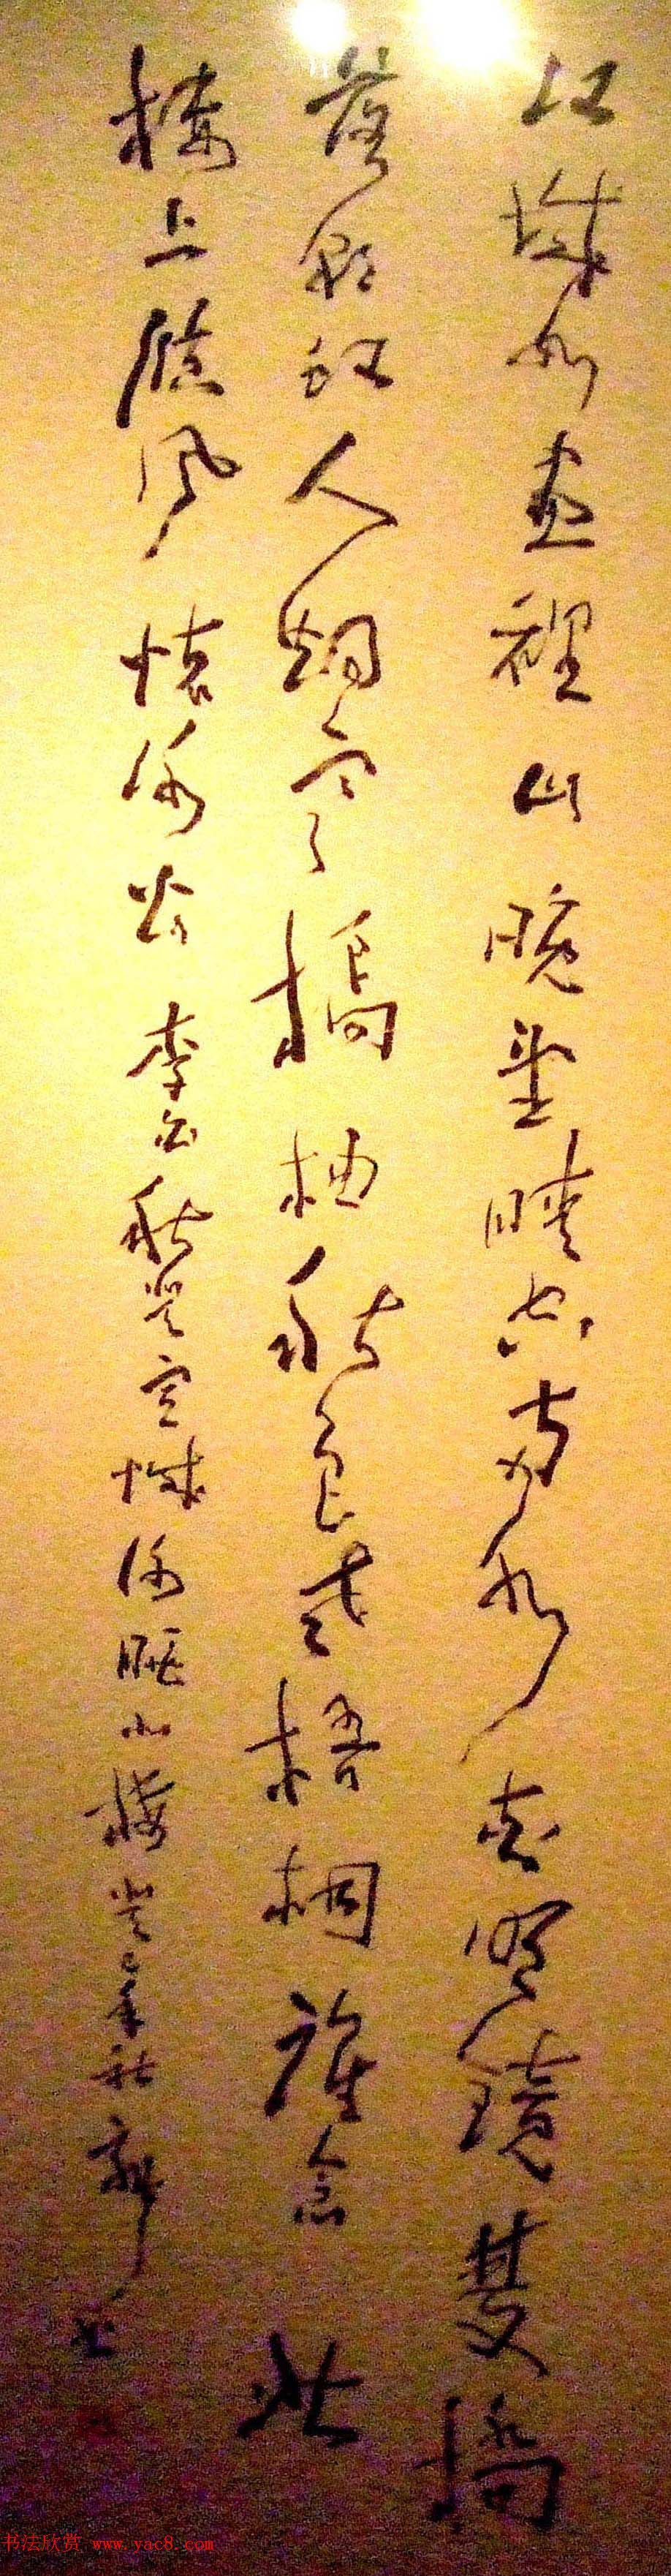 江城如畫裡山晚望晴空兩水夾明鏡雙橋
落彩虹人烟寒橘柚秋色老梧桐誰念北
樓上臨風懷謝公 李白秋登宣城謝脁北樓
书法欣赏 www.yac8.com